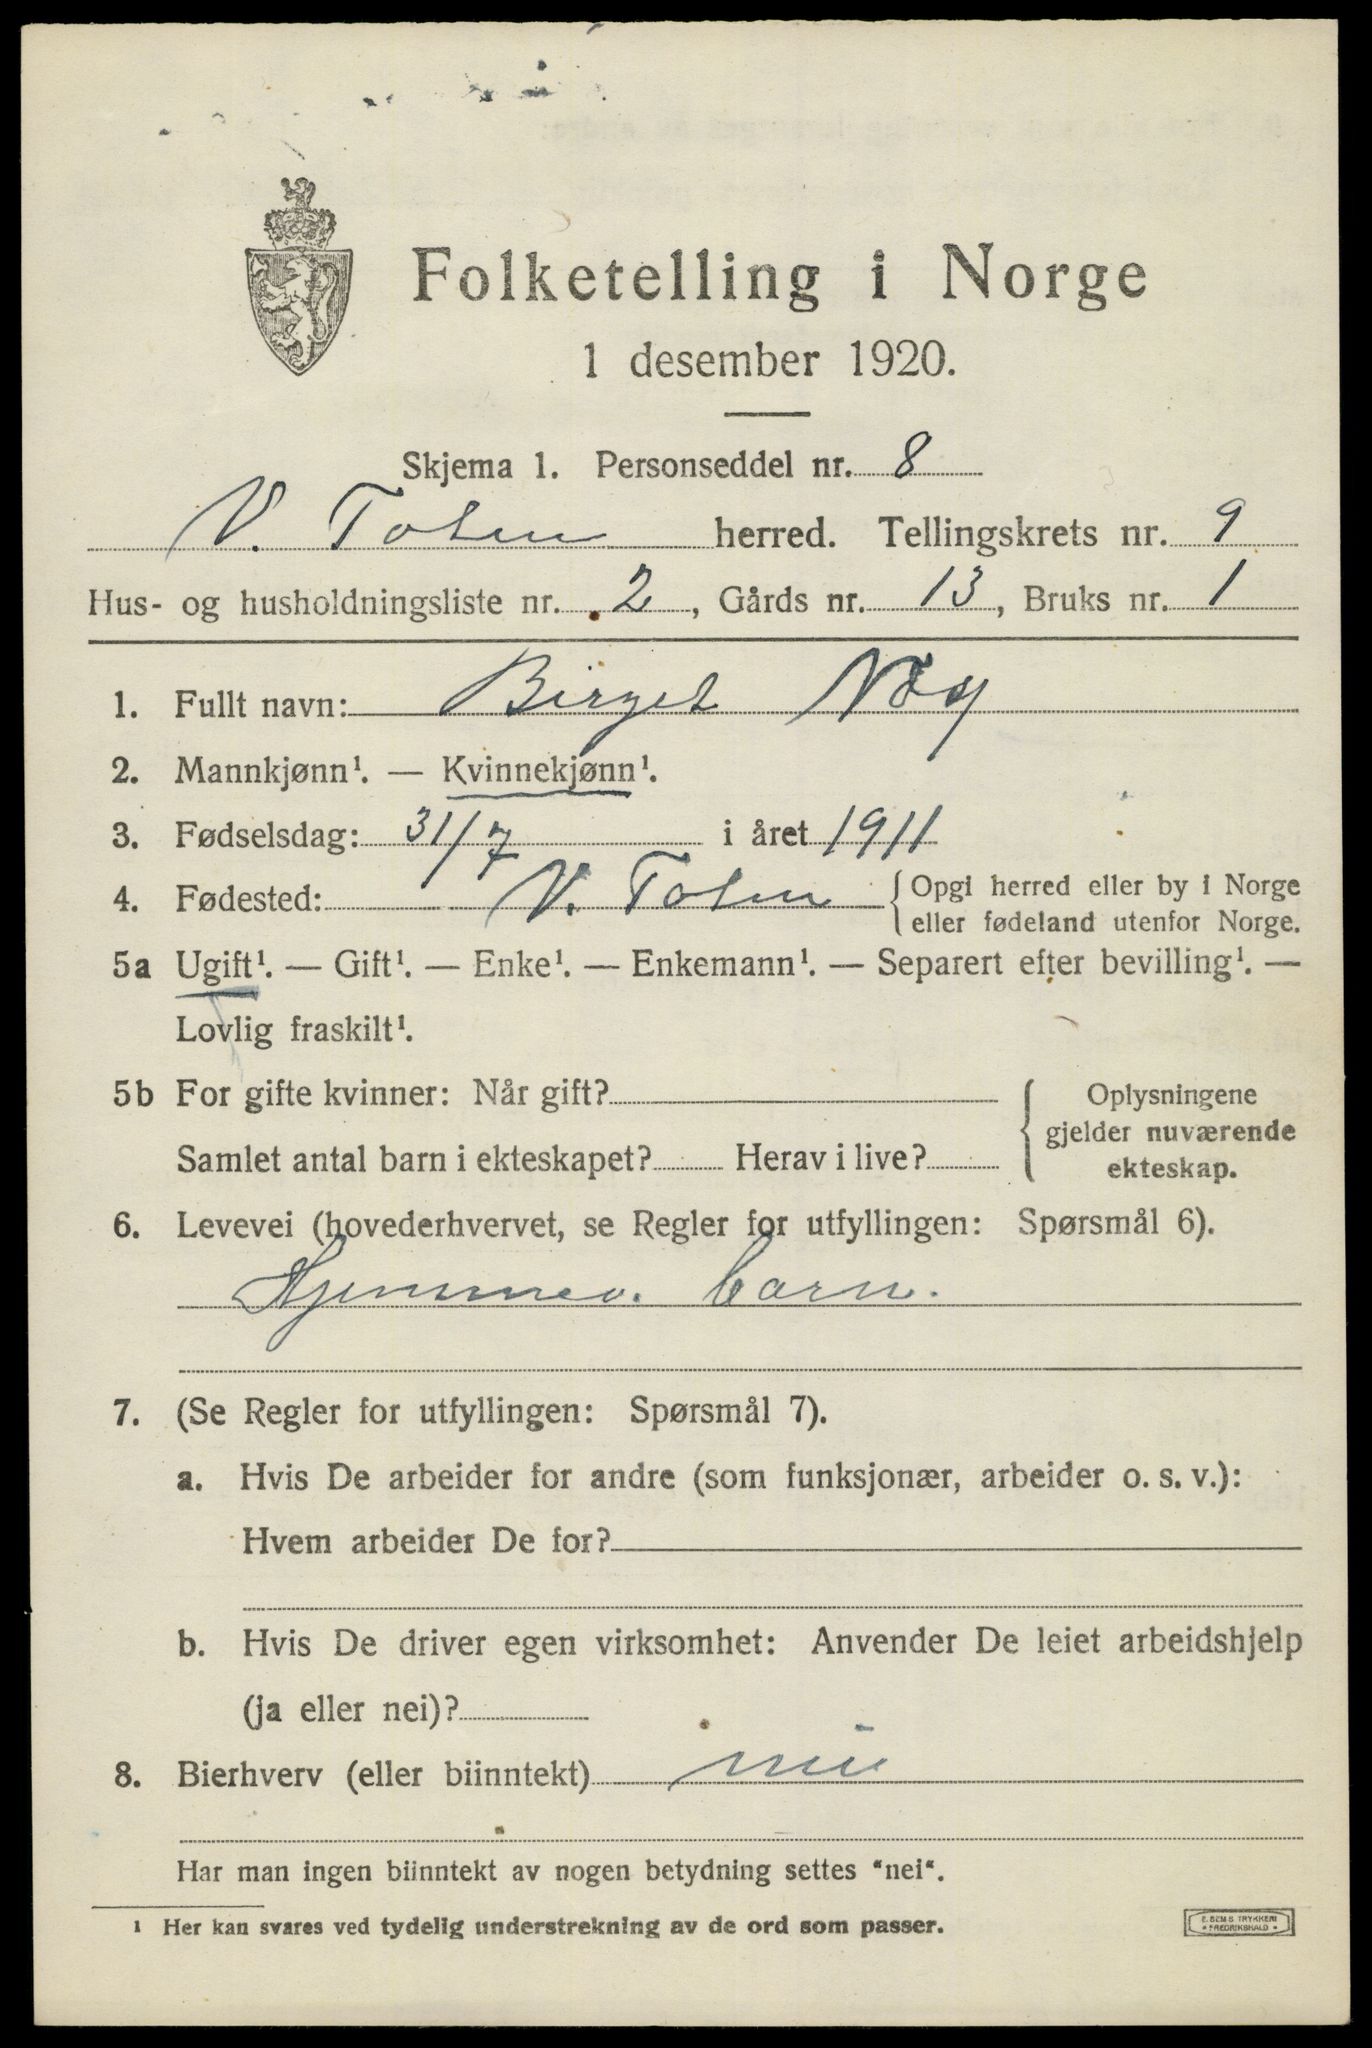 Folketelling i Norge
1 desember 1920.
Skjema 1. Personseddel nr. 8
V. Toten herred. Tellingskrets nr. 9
Hus- og husholdningsliste nr. 2, Gårds nr. 13, Bruks nr. 1
1. Fullt navn: Birget
2. Mannkjønn¹. — Kvinnekjønn¹.
3. Fødselsdag: 31/7 i året 1911
4. Fødested: V. Toten {Opgi herred eller by i Norge
eller fødeland utenfor Norge.
5a Ugift¹. — Gift¹. — Enke¹. — Enkemann¹. — Separert efter bevilling¹. —
Lovlig fraskilt¹.
5b For gifte kvinner: Når gift?
Samlet antal barn i ekteskapet? Herav i live?
{Oplysningene
gjelder nuværende
ekteskap.
6. Levevei (hovederhvervet, se Regler for utfyllingen: Spørsmål 6).
Hjemmev. barn.
7. (Se Regler for utfyllingen: Spørsmål 7).
a. Hvis De arbeider for andre (som funksjonær, arbeider o. s. v.):
Hvem arbeider De for?
b. Hvis De driver egen virksomhet: Anvender De leiet arbeidshjelp
(ja eller nei)?
8. Bierhverv (eller biinntekt) nei
Har man ingen biinntekt av nogen betydning settes "nei".
¹ Her kan svares ved tydelig understrekning av de ord som passer.
E. SEM'S TRYKKERI
• FREDRIKSHALD •